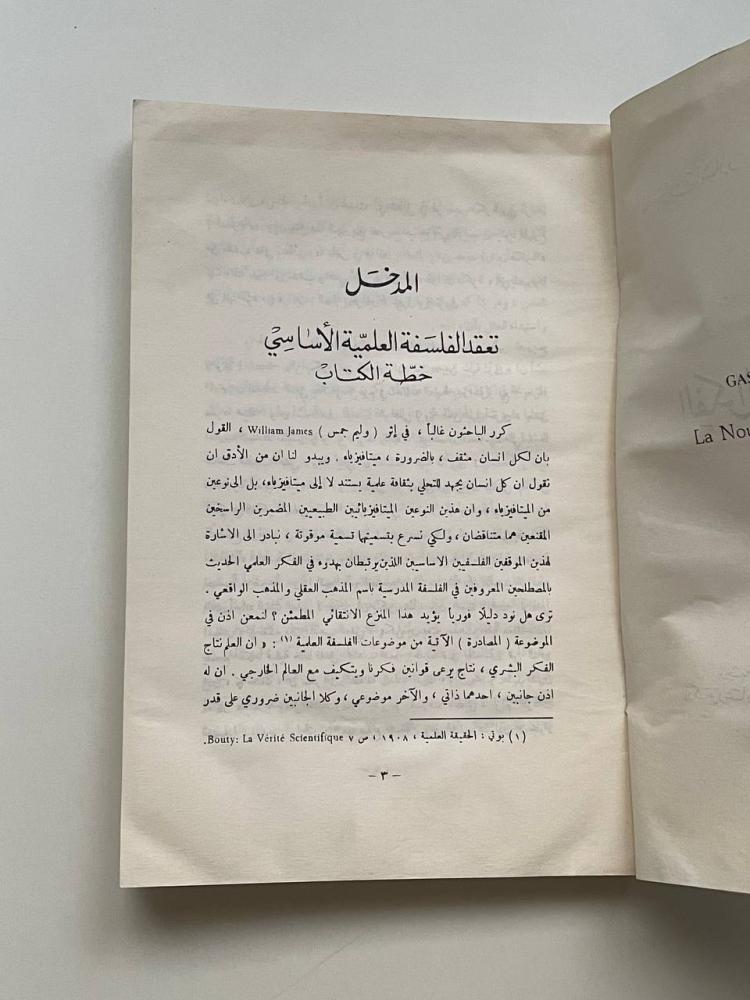 المدخَل
تعقد الفلسَفة العلميّة الأسَاسِيّ
خطّة الكتابْ
كرر الباحثون غالباً ، في إثر ( وليم جمس ) William James ، القول
بان لكل انسان مثقف ، بالضرورة ، ميتافيزياء . ويبدو لنا ان من الأدق ان
نقول ان كل انسان يجهد للتحلي بثقافة علمية يستند لا إلى ميتافيزياء، بل الى نوعين
من الميتافيزياء ، وان هذين النوعين الميتافيزيائيين الطبيعيين المضمرين الراسخين
المقنعين هما متناقضان ، ولكي نسرع بتسميتها تسمية موقوتة ، نبادر الى الاشارة
لهذين الموقفين الفلسفيين الاساسيين اللذين يرتبطان بهدوء في الفكر العلمي الحديث
بالمصطلحين المعروفين في الفلسفة المدرسية باسم المذهب العقلي والمذهب الواقعي .
ترى هل نود دليلًا فورياً يؤيد هذا المنزع الانتقائي المطمئن ؟ لنمعن اذن في
الموضوعة ( المصادرة ) الآتية من موضوعات الفلسفة العلمية (١) : « ان العلم نتاج
الفكر البشري ، نتاج يرعى قوانين فكرنا ويتكيف مع العالم الخارجي . ان له
اذن جانبين ، احدهما ذاتي ، والآخر موضوعي ، وكلا الجانبين ضروري على قدر
(١) بوتي : الحقيقة العلمية ، ١٩٠٨ ، ص ٧ Bouty: La Vérité Scientifique.
– ٣ –
GAS
La Nou